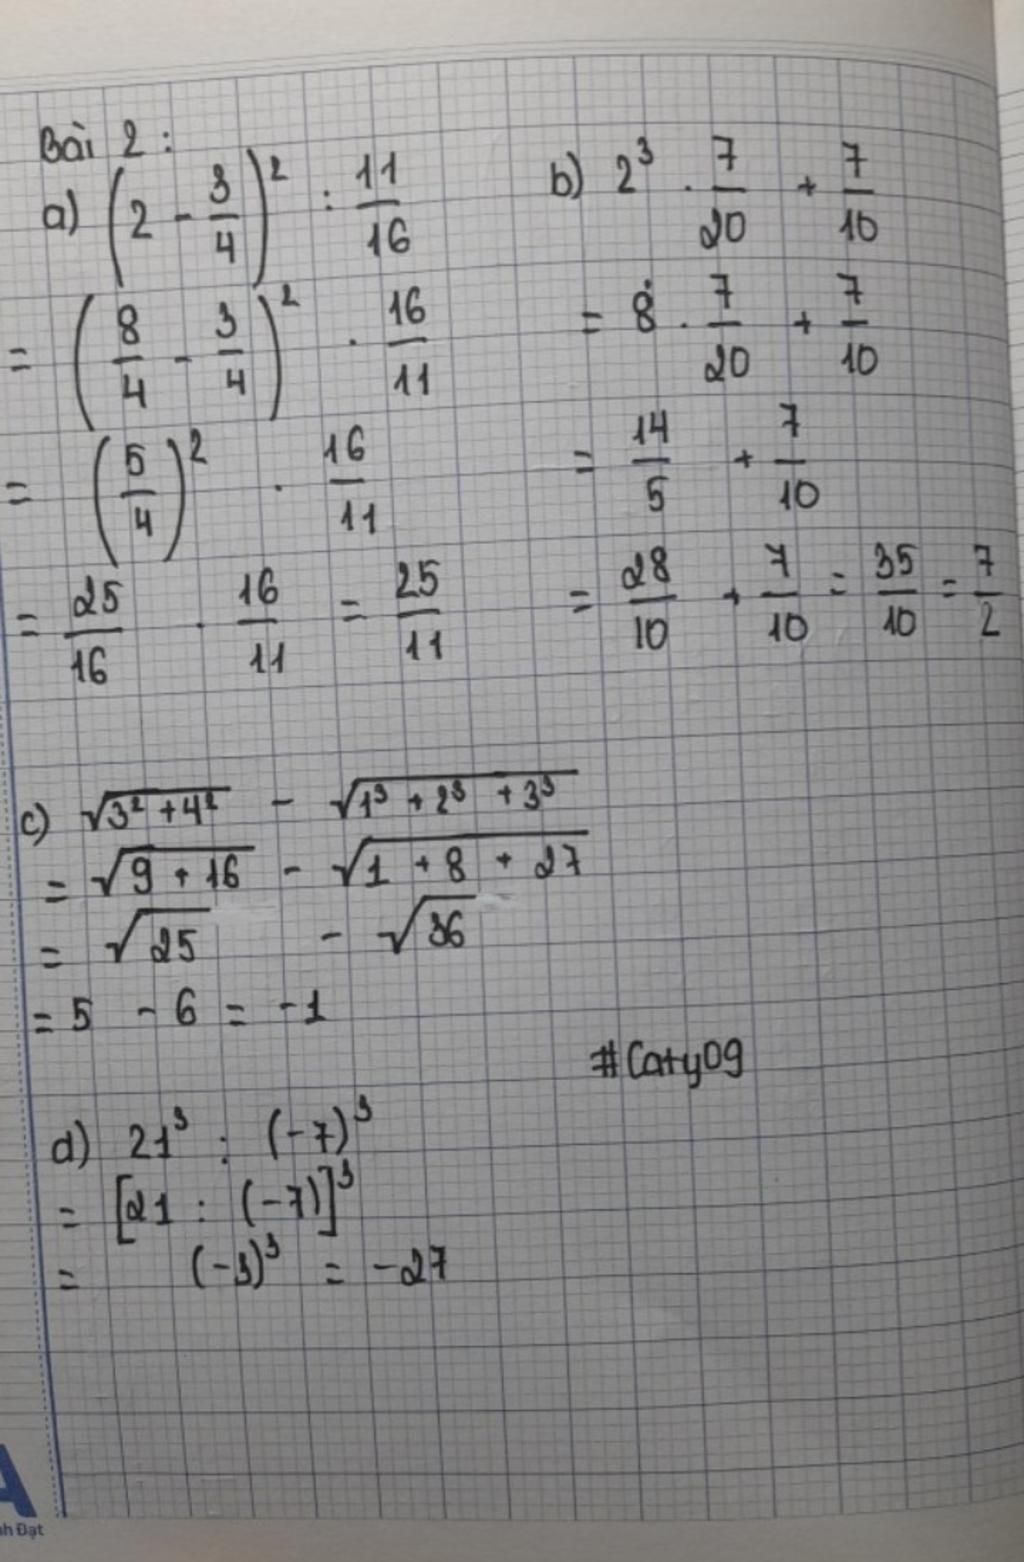 Bài 2 :
a) (2 - 3/4)² : 11/16
= (8/4 - 3/4)² . 16/11
= (5/4)² . 16/11
= 25/16 . 16/11 = 25/11
b) 2³ . 7/20 + 7/10
= 8 . 7/20 + 7/10
= 14/5 + 7/10
= 28/10 + 7/10 = 35/10 = 7/2
c) √(3² + 4²) - √(1³ + 2³ + 3³)
= √(9 + 16) - √(1 + 8 + 27)
= √25 - √36
= 5 - 6 = -1
#Caty09
d) 21³ : (-7)³
= [21 : (-7)]³
= (-3)³ = -27
A
nh Đạt